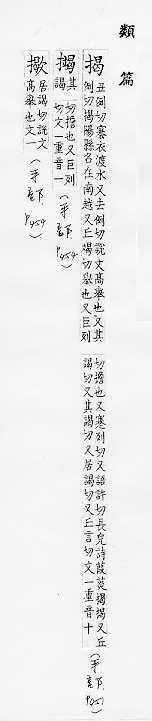 類篇
揭
丑例切褰衣渡水又去例切說文高舉也又其
例切揭陽縣名在南越又丘竭切舉也又巨列
切擔也又蹇列切又語許切長皃詩葭菼揭揭又丘
謁切又其謁切又居謁切又丘言切文一重音十
其謁
切擔也又巨列
切文一重音一
P454
居謁切說文
高舉也文一
P454